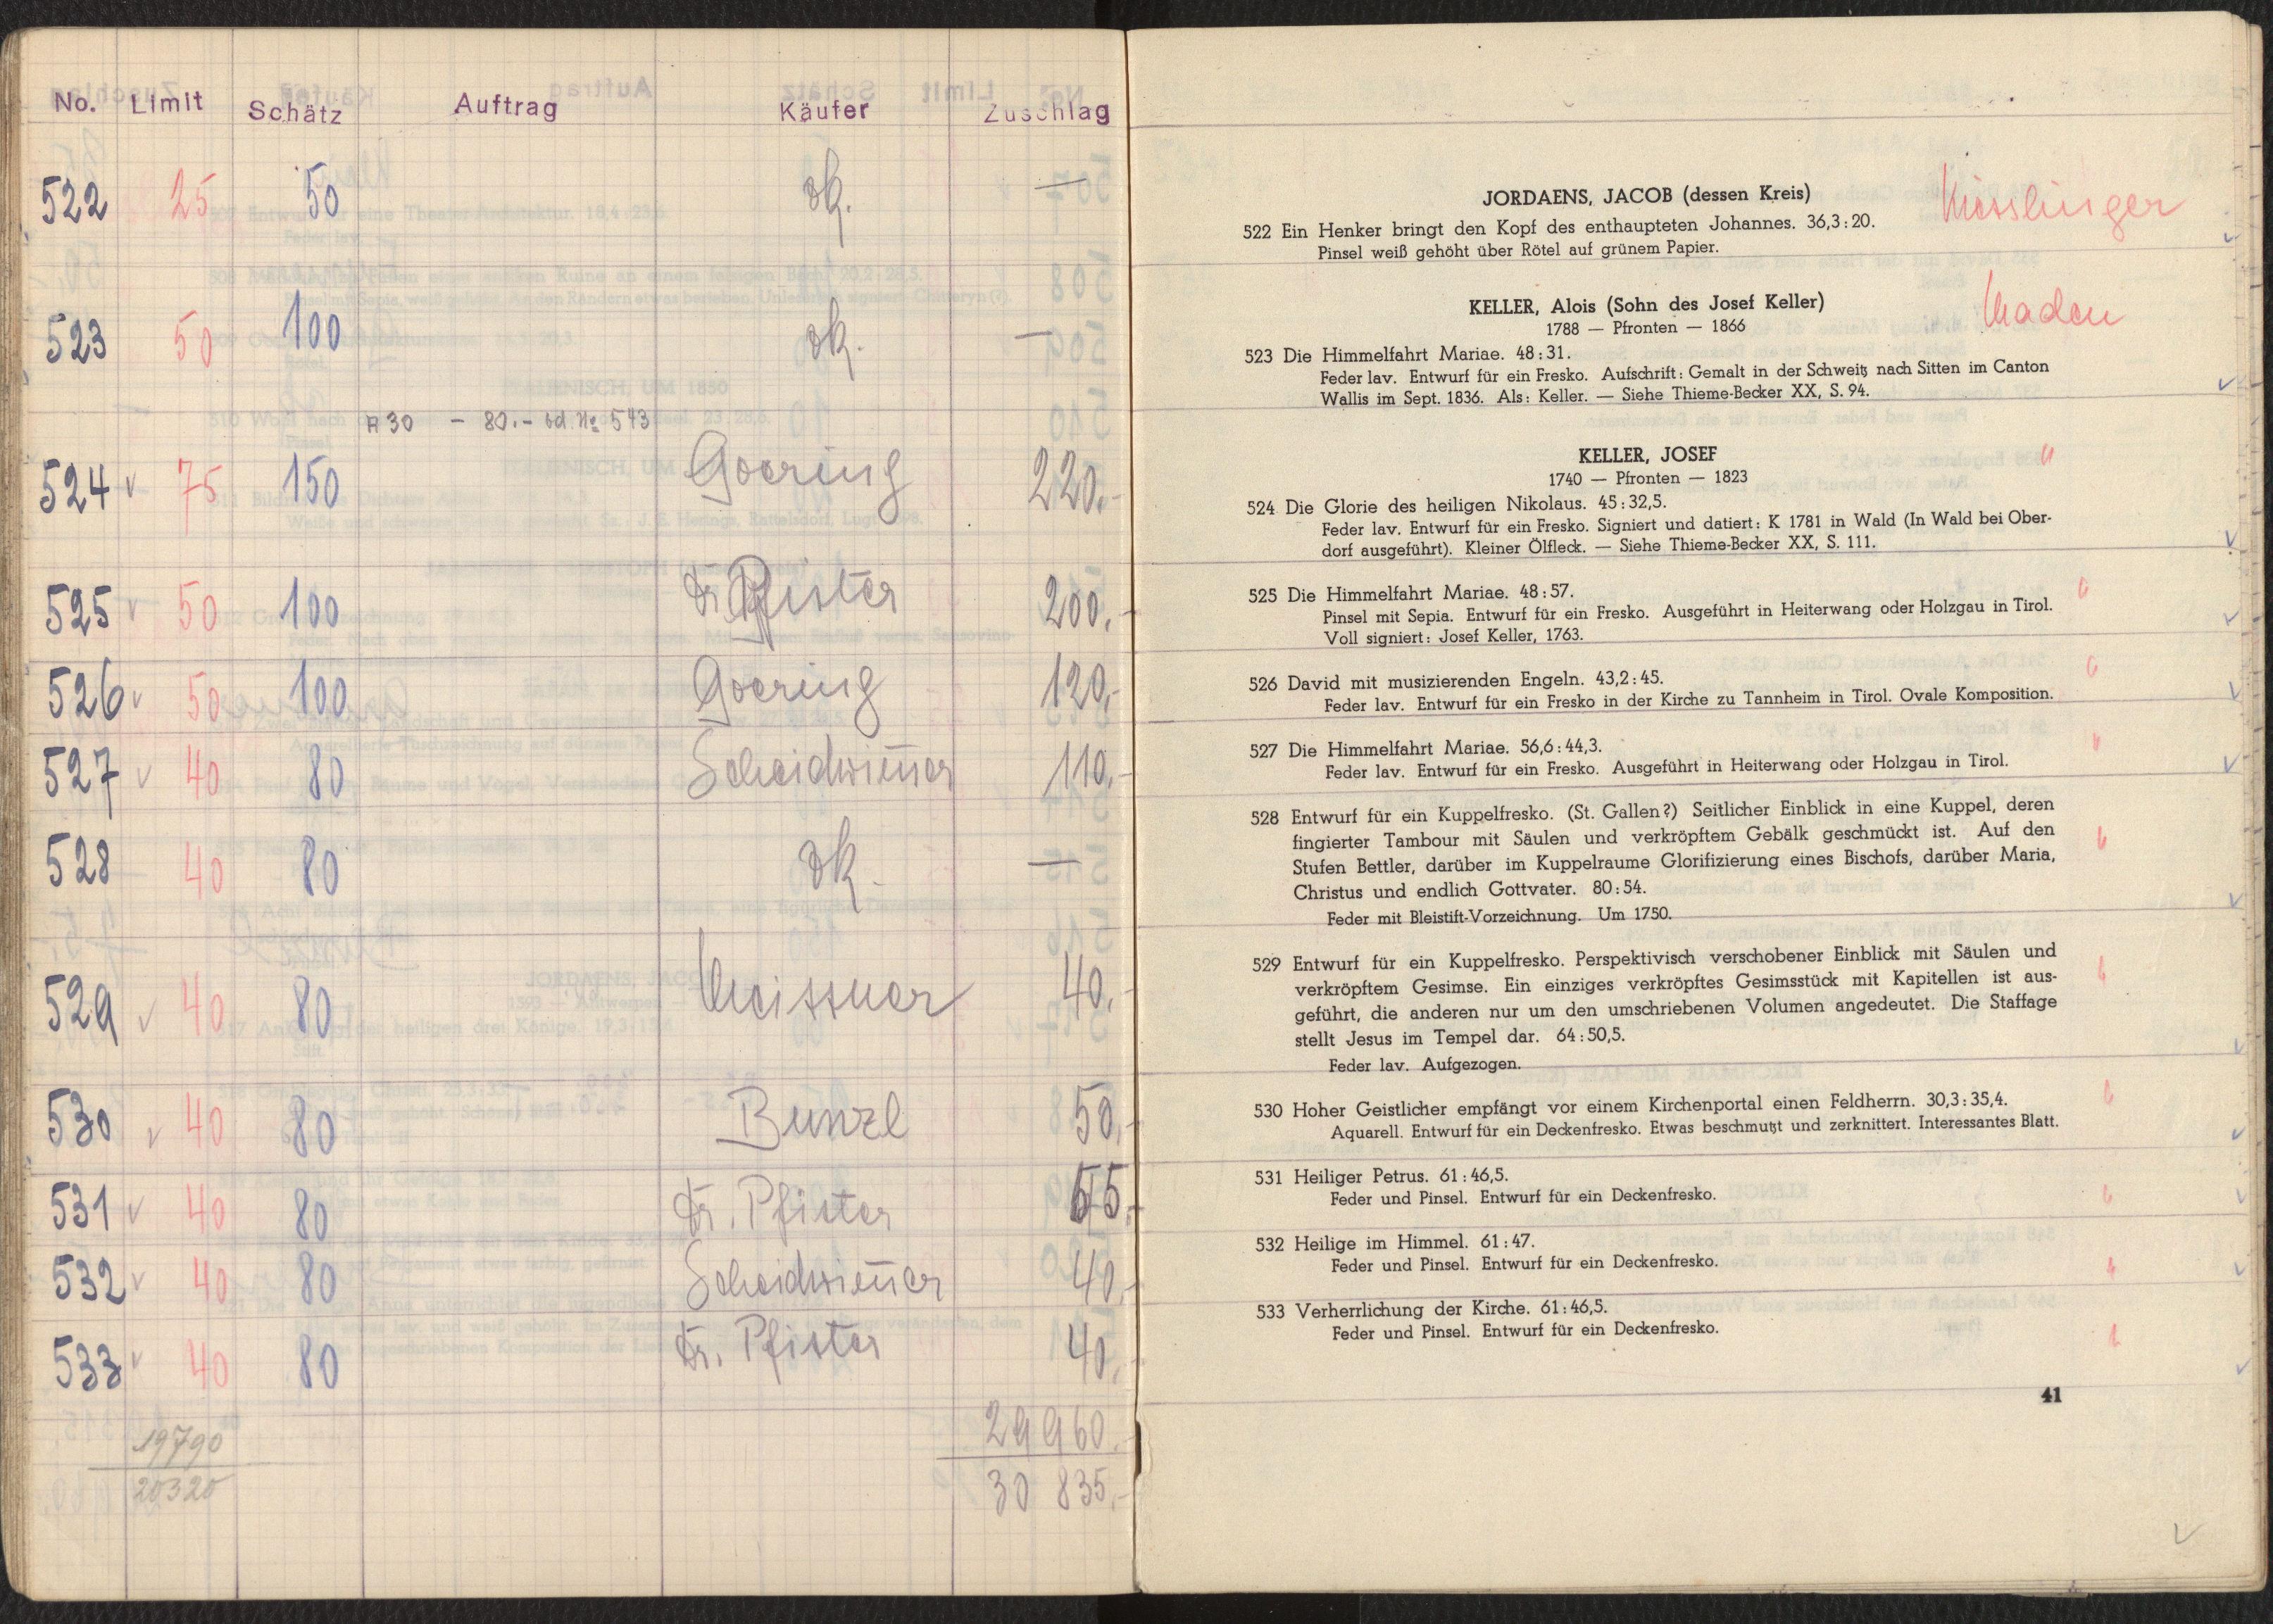 No. Limit Schätz Auftrag Käufer Zuschlag
522 25 50 zk. —
523 50 100 zk. —
A 30 – 80.– od. No 543
524 v 75 150 Goering 220.-
525 v 50 100 Dr. Pfister 200.-
526 v 50 100 Goering 120.-
527 v 40 80 Scheidwimmer 110.-
528 40 80 zk. —
529 v 40 80 Meissner 40.-
530 v 40 80 Bunzl 50.-
531 v 40 80 Dr. Pfister 55.-
532 v 40 80 Scheidwimmer 40.-
533 v 40 80 Dr. Pfister 40.-
19790 29960.
20320 30 835.-
JORDAENS, JACOB (dessen Kreis) Kiesslinger
522 Ein Henker bringt den Kopf des enthaupteten Johannes. 36,3:20.
Pinsel weiß gehöht über Rötel auf grünem Papier.
KELLER, Alois (Sohn des Josef Keller)
1788 — Pfronten — 1866
523 Die Himmelfahrt Mariae. 48:31.
Feder lav. Entwurf für ein Fresko. Aufschrift: Gemalt in der Schweitz nach Sitten im Canton
Wallis im Sept. 1836. Als: Keller. — Siehe Thieme-Becker XX, S. 94.
KELLER, JOSEF
1740 — Pfronten — 1823
524 Die Glorie des heiligen Nikolaus. 45:32,5.
Feder lav. Entwurf für ein Fresko. Signiert und datiert: K 1781 in Wald (In Wald bei Ober-
dorf ausgeführt). Kleiner Ölfleck. — Siehe Thieme-Becker XX, S. 111.
525 Die Himmelfahrt Mariae. 48:57.
Pinsel mit Sepia. Entwurf für ein Fresko. Ausgeführt in Heiterwang oder Holzgau in Tirol.
Voll signiert: Josef Keller, 1763.
526 David mit musizierenden Engeln. 43,2:45.
Feder lav. Entwurf für ein Fresko in der Kirche zu Tannheim in Tirol. Ovale Komposition.
527 Die Himmelfahrt Mariae. 56,6:44,3.
Feder lav. Entwurf für ein Fresko. Ausgeführt in Heiterwang oder Holzgau in Tirol.
528 Entwurf für ein Kuppelfresko. (St. Gallen?) Seitlicher Einblick in eine Kuppel, deren
fingierter Tambour mit Säulen und verkröpftem Gebälk geschmückt ist. Auf den
Stufen Bettler, darüber im Kuppelraume Glorifizierung eines Bischofs, darüber Maria,
Christus und endlich Gottvater. 80:54.
Feder mit Bleistift-Vorzeichnung. Um 1750.
529 Entwurf für ein Kuppelfresko. Perspektivisch verschobener Einblick mit Säulen und
verkröpftem Gesimse. Ein einziges verkröpftes Gesimsstück mit Kapitellen ist aus-
geführt, die anderen nur um den umschriebenen Volumen angedeutet. Die Staffage
stellt Jesus im Tempel dar. 64:50,5.
Feder lav. Aufgezogen.
530 Hoher Geistlicher empfängt vor einem Kirchenportal einen Feldherrn. 30,3:35,4.
Aquarell. Entwurf für ein Deckenfresko. Etwas beschmutzt und zerknittert. Interessantes Blatt.
531 Heiliger Petrus. 61:46,5.
Feder und Pinsel. Entwurf für ein Deckenfresko.
532 Heilige im Himmel. 61:47.
Feder und Pinsel. Entwurf für ein Deckenfresko.
533 Verherrlichung der Kirche. 61:46,5.
Feder und Pinsel. Entwurf für ein Deckenfresko.
41